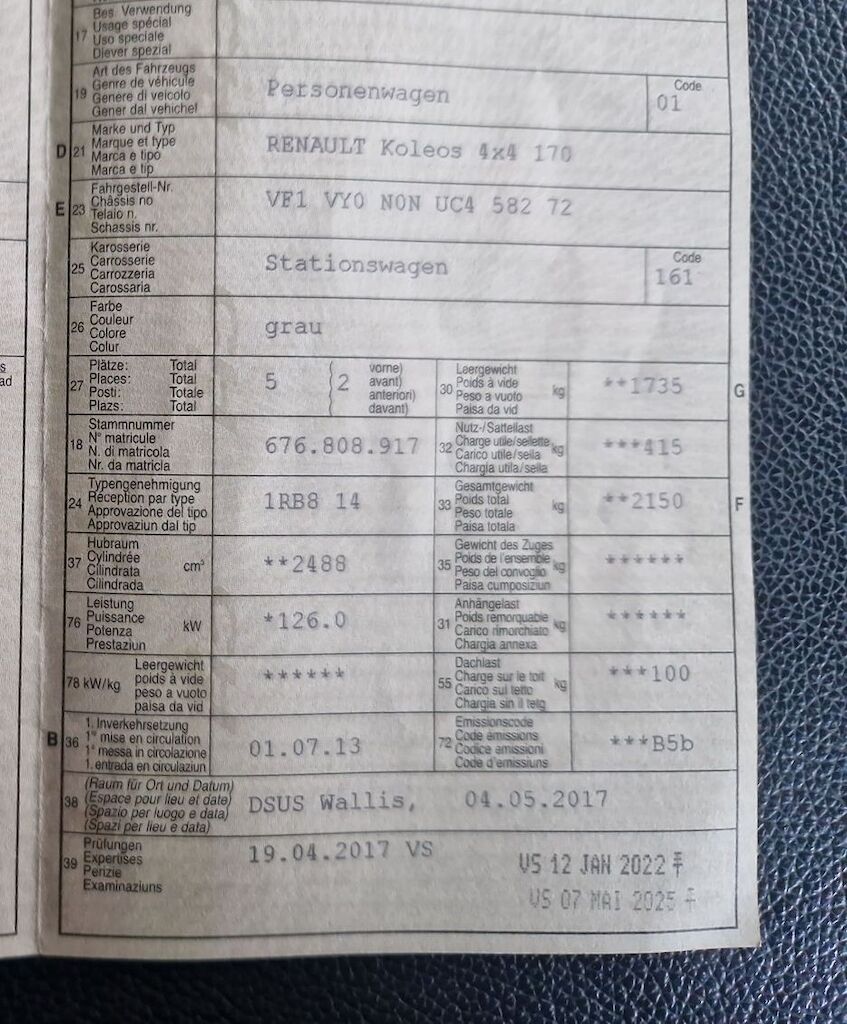 Bes. Verwendung
17 Usage spécial
Uso speciale
Diever spezial
Art des Fahrzeugs
19 Genre de véhicule
Genere di veicolo
Gener dal vehichel
Personenwagen
Code
01
Marke und Typ
D 21 Marque et type
Marca e tipo
Marca e tip
RENAULT Koleos 4x4 170
Fahrgestell-Nr.
E 23 Châssis no
Telaio n.
Schassis nr.
VF1 VY0 N0N UC4 582 72
Karosserie
25 Carrosserie
Carrozzeria
Carossaria
Stationswagen
Code
161
Farbe
26 Couleur
Colore
Colur
grau
Plätze: Total
27 Places: Total
Posti: Totale
Plazs: Total
5
2
vorne)
avant)
anteriori)
davant)
Leergewicht
30 Poids à vide kg
Peso a vuoto
Paisa da vid
**1735
G
Stammnummer
18 N° matricule
N. di matricola
Nr. da matricla
676.808.917
Nutz-/Sattellast
32 Charge utile/sellette kg
Carico utile/sella
Chargia utila/sella
***415
Typengenehmigung
24 Réception par type
Approvazione del tipo
Approvaziun dal tip
1RB8 14
Gesamtgewicht
33 Poids total kg
Peso totale
Paisa totala
**2150
F
Hubraum
37 Cylindrée cm³
Cilindrata
Cilindrada
**2488
Gewicht des Zuges
35 Poids de l'ensemble kg
Peso del convoglio
Paisa cumposiziun
******
Leistung
76 Puissance kW
Potenza
Prestaziun
*126.0
Anhängelast
31 Poids remorquable kg
Carico rimorchiato
Chargia annexa
******
Leergewicht
78 kW/kg poids à vide
peso a vuoto
paisa da vid
******
Dachlast
55 Charge sur le toit kg
Carico sul tetto
Chargia sin il tetg
***100
1. Inverkehrsetzung
B 36 1re mise en circulation
1a messa in circolazione
1. entrada en circulaziun
01.07.13
Emissionscode
72 Code émissions
Codice emissioni
Code d'emissiuns
***B5b
(Raum für Ort und Datum)
38 (Espace pour lieu et date)
(Spazio per luogo e data)
(Spazi per lieu e data)
DSUS Wallis, 04.05.2017
Prüfungen
39 Expertises
Perizie
Examinaziuns
19.04.2017 VS
VS 12 JAN 2022
VS 07 MAI 2025